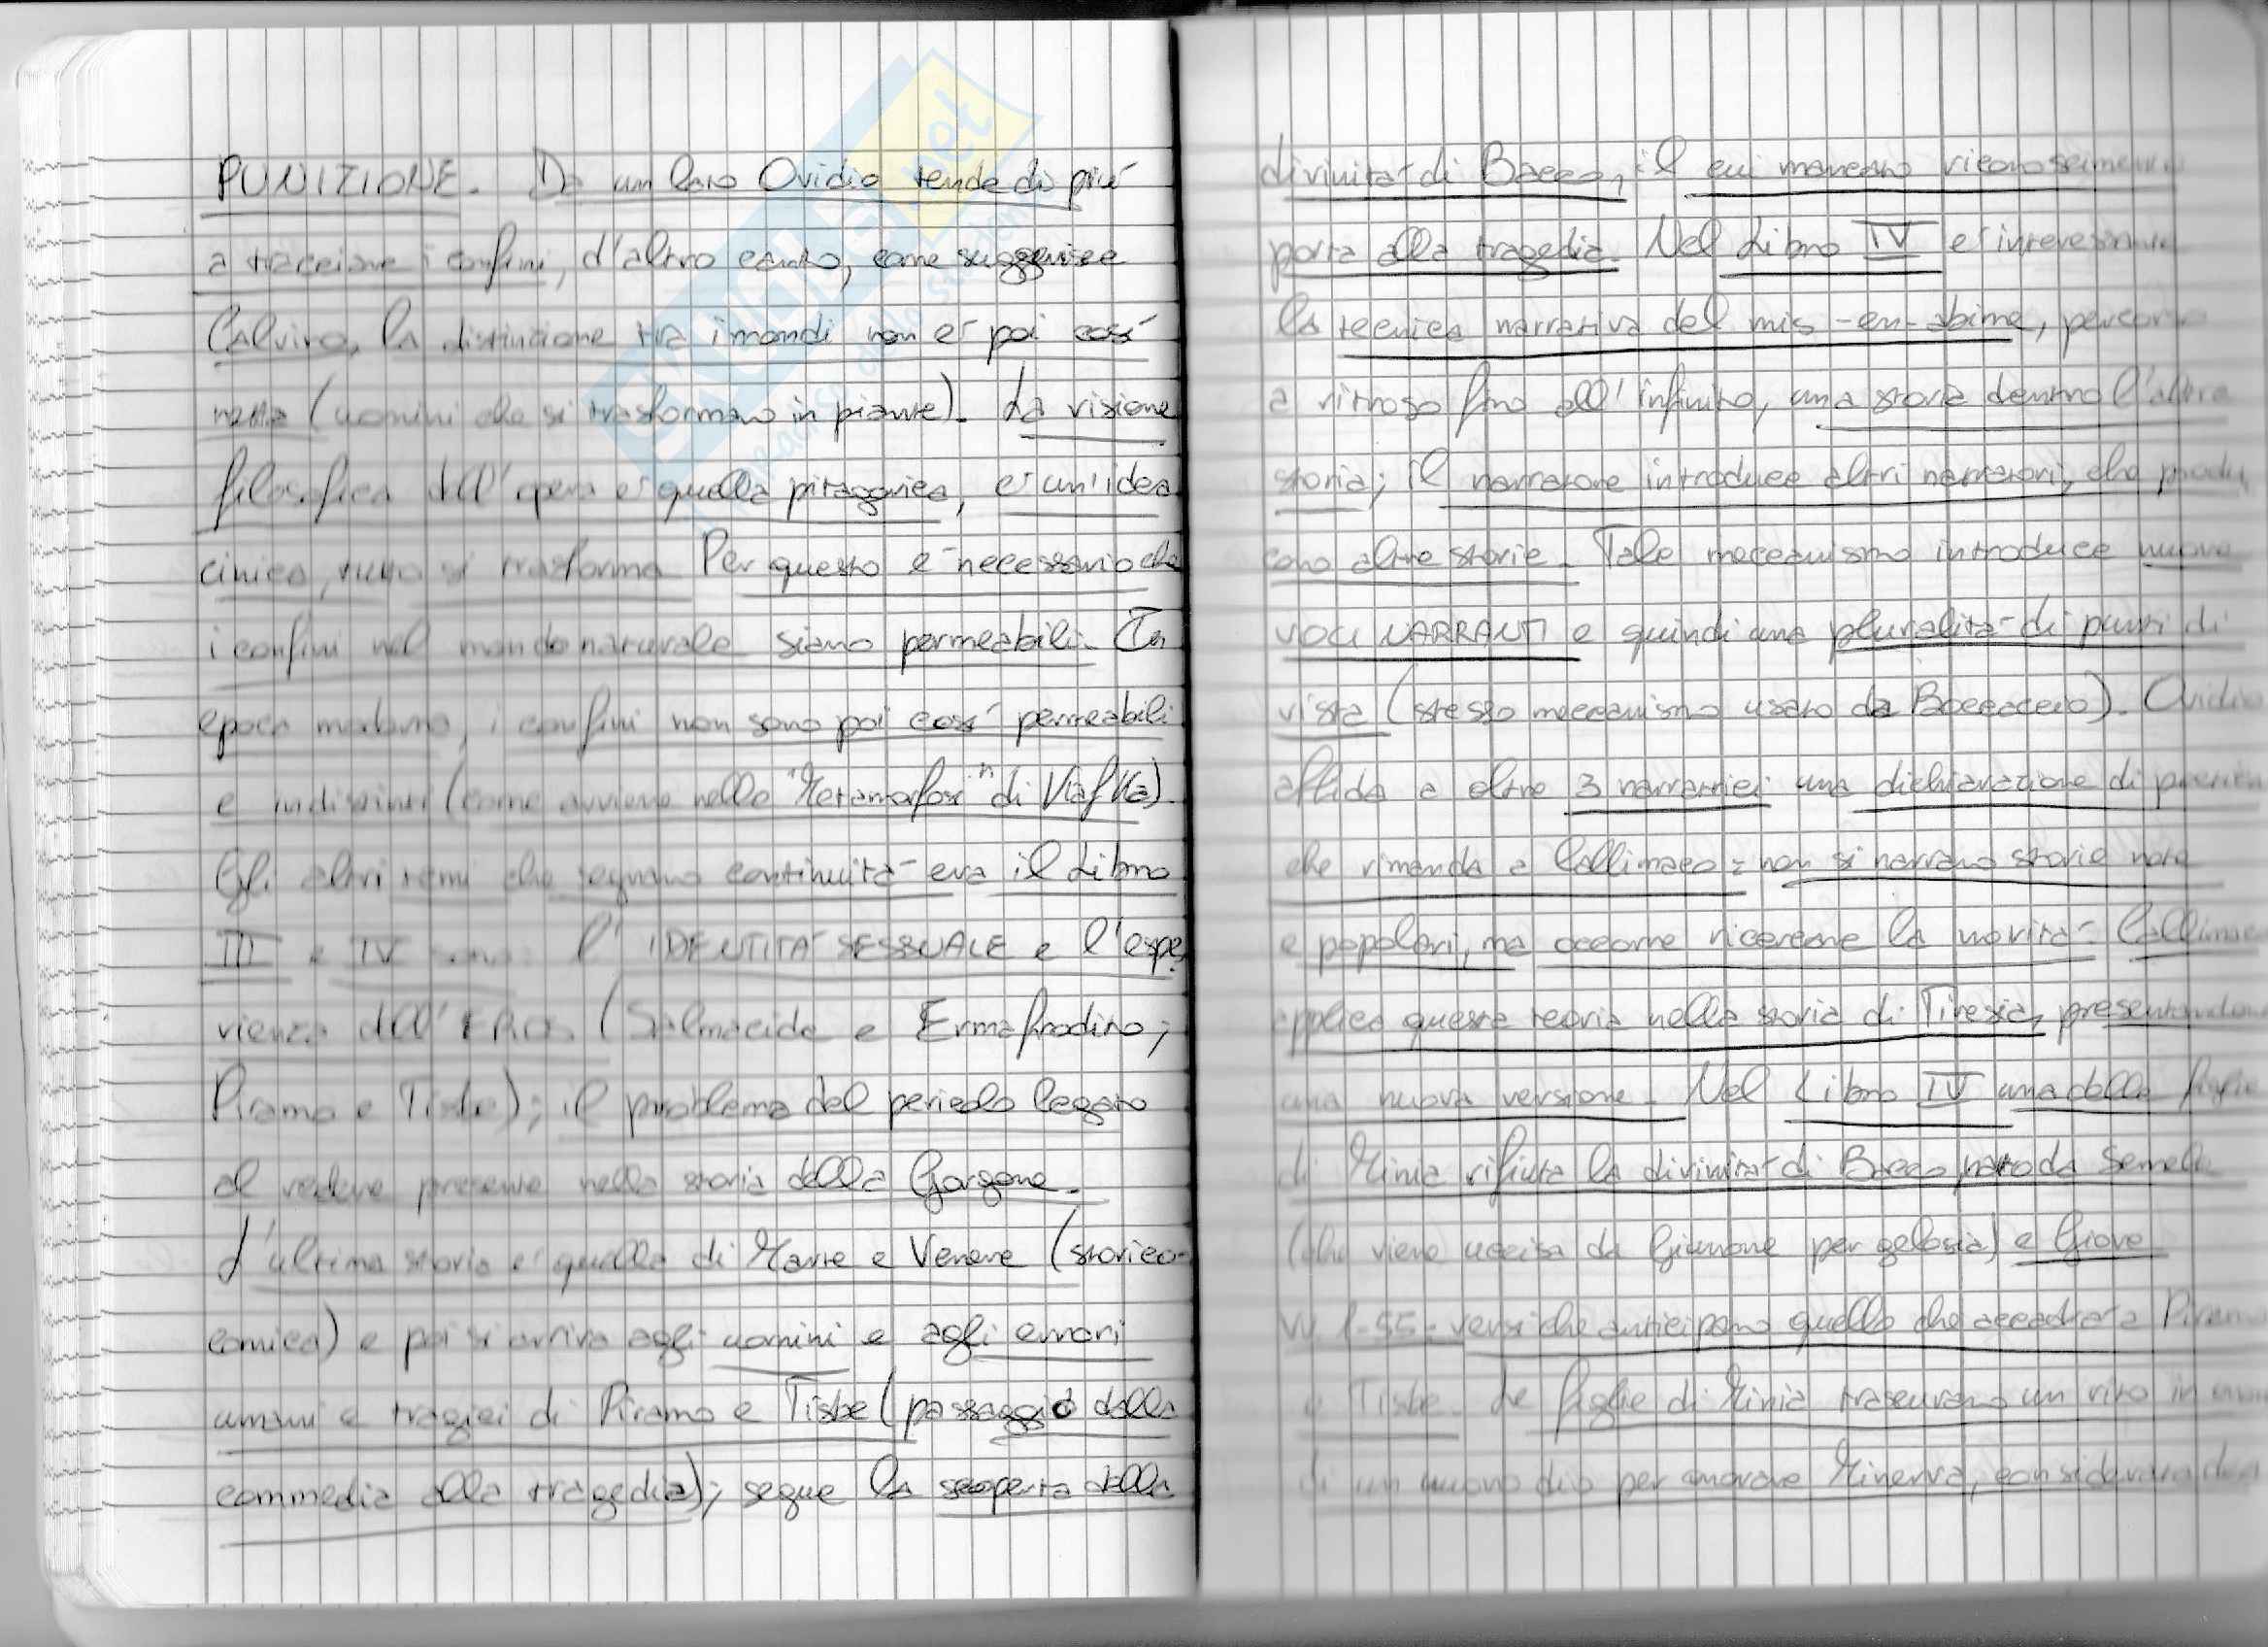 PUNIZIONE. Da un lato Ovidio tende di più
a tracciare i confini, d'altro canto, come suggerisce
Calvino, la distinzione tra i mondi non è poi così
netta (uomini che si trasformano in piante). La visione
filosofica dell'opera è quella pitagorica, è un'idea
cinica, tutto si trasforma. Per questo è necessario che
i confini nel mondo naturale siano permeabili. In
epoca moderna, i confini non sono poi così permeabili
e indistinti (come avviene nella "Metamorfosi" di Kafka).
Gli altri temi che segnano continuità tra il Libro
III e IV sono: l'IDENTITÀ SESSUALE e l'espe
rienza dell'EROS (Salmacide e Ermafrodito;
Piramo e Tisbe); il problema del pericolo legato
al vedere presente nella storia della Gorgone.
L'ultima storia è quella di Marte e Venere (storico-
comica) e poi si arriva agli uomini e agli errori
umani e tragici di Piramo e Tisbe (passaggio dalla
commedia alla tragedia); segue la scoperta della
divinità di Bacco, il cui mancato riconoscimento
porta alla tragedia. Nel Libro IV è interessante
la tecnica narrativa del mis-en-abime, percorso
a ritroso fino all'infinito, una storia dentro l'altra
storia; il narratore introduce altri narratori, che produ
cono altre storie. Tale meccanismo introduce nuove
VOCI NARRANTI e quindi una pluralità di punti di
vista (stesso meccanismo usato da Boccaccio). Ovidio
affida a altre 3 narratrici una dichiarazione di poetica
che rimanda a Callimaco: non si narrano storie note
e popolari, ma occorre ricercare la novità. Callimaco
applica questa teoria nella storia di Tiresia, presentandone
una nuova versione. Nel Libro IV una delle figlie
di Minia rifiuta la divinità di Bacco nato da Semele
(che viene uccisa da Giunone per gelosia) e Giove
vv 1-55: versi che anticipano quello che accadrà a Piramo
e Tisbe. Le figlie di Minia trascurano un rito in onore
di un nuovo dio per onorare Minerva, considerata dea
SKUOLA.net